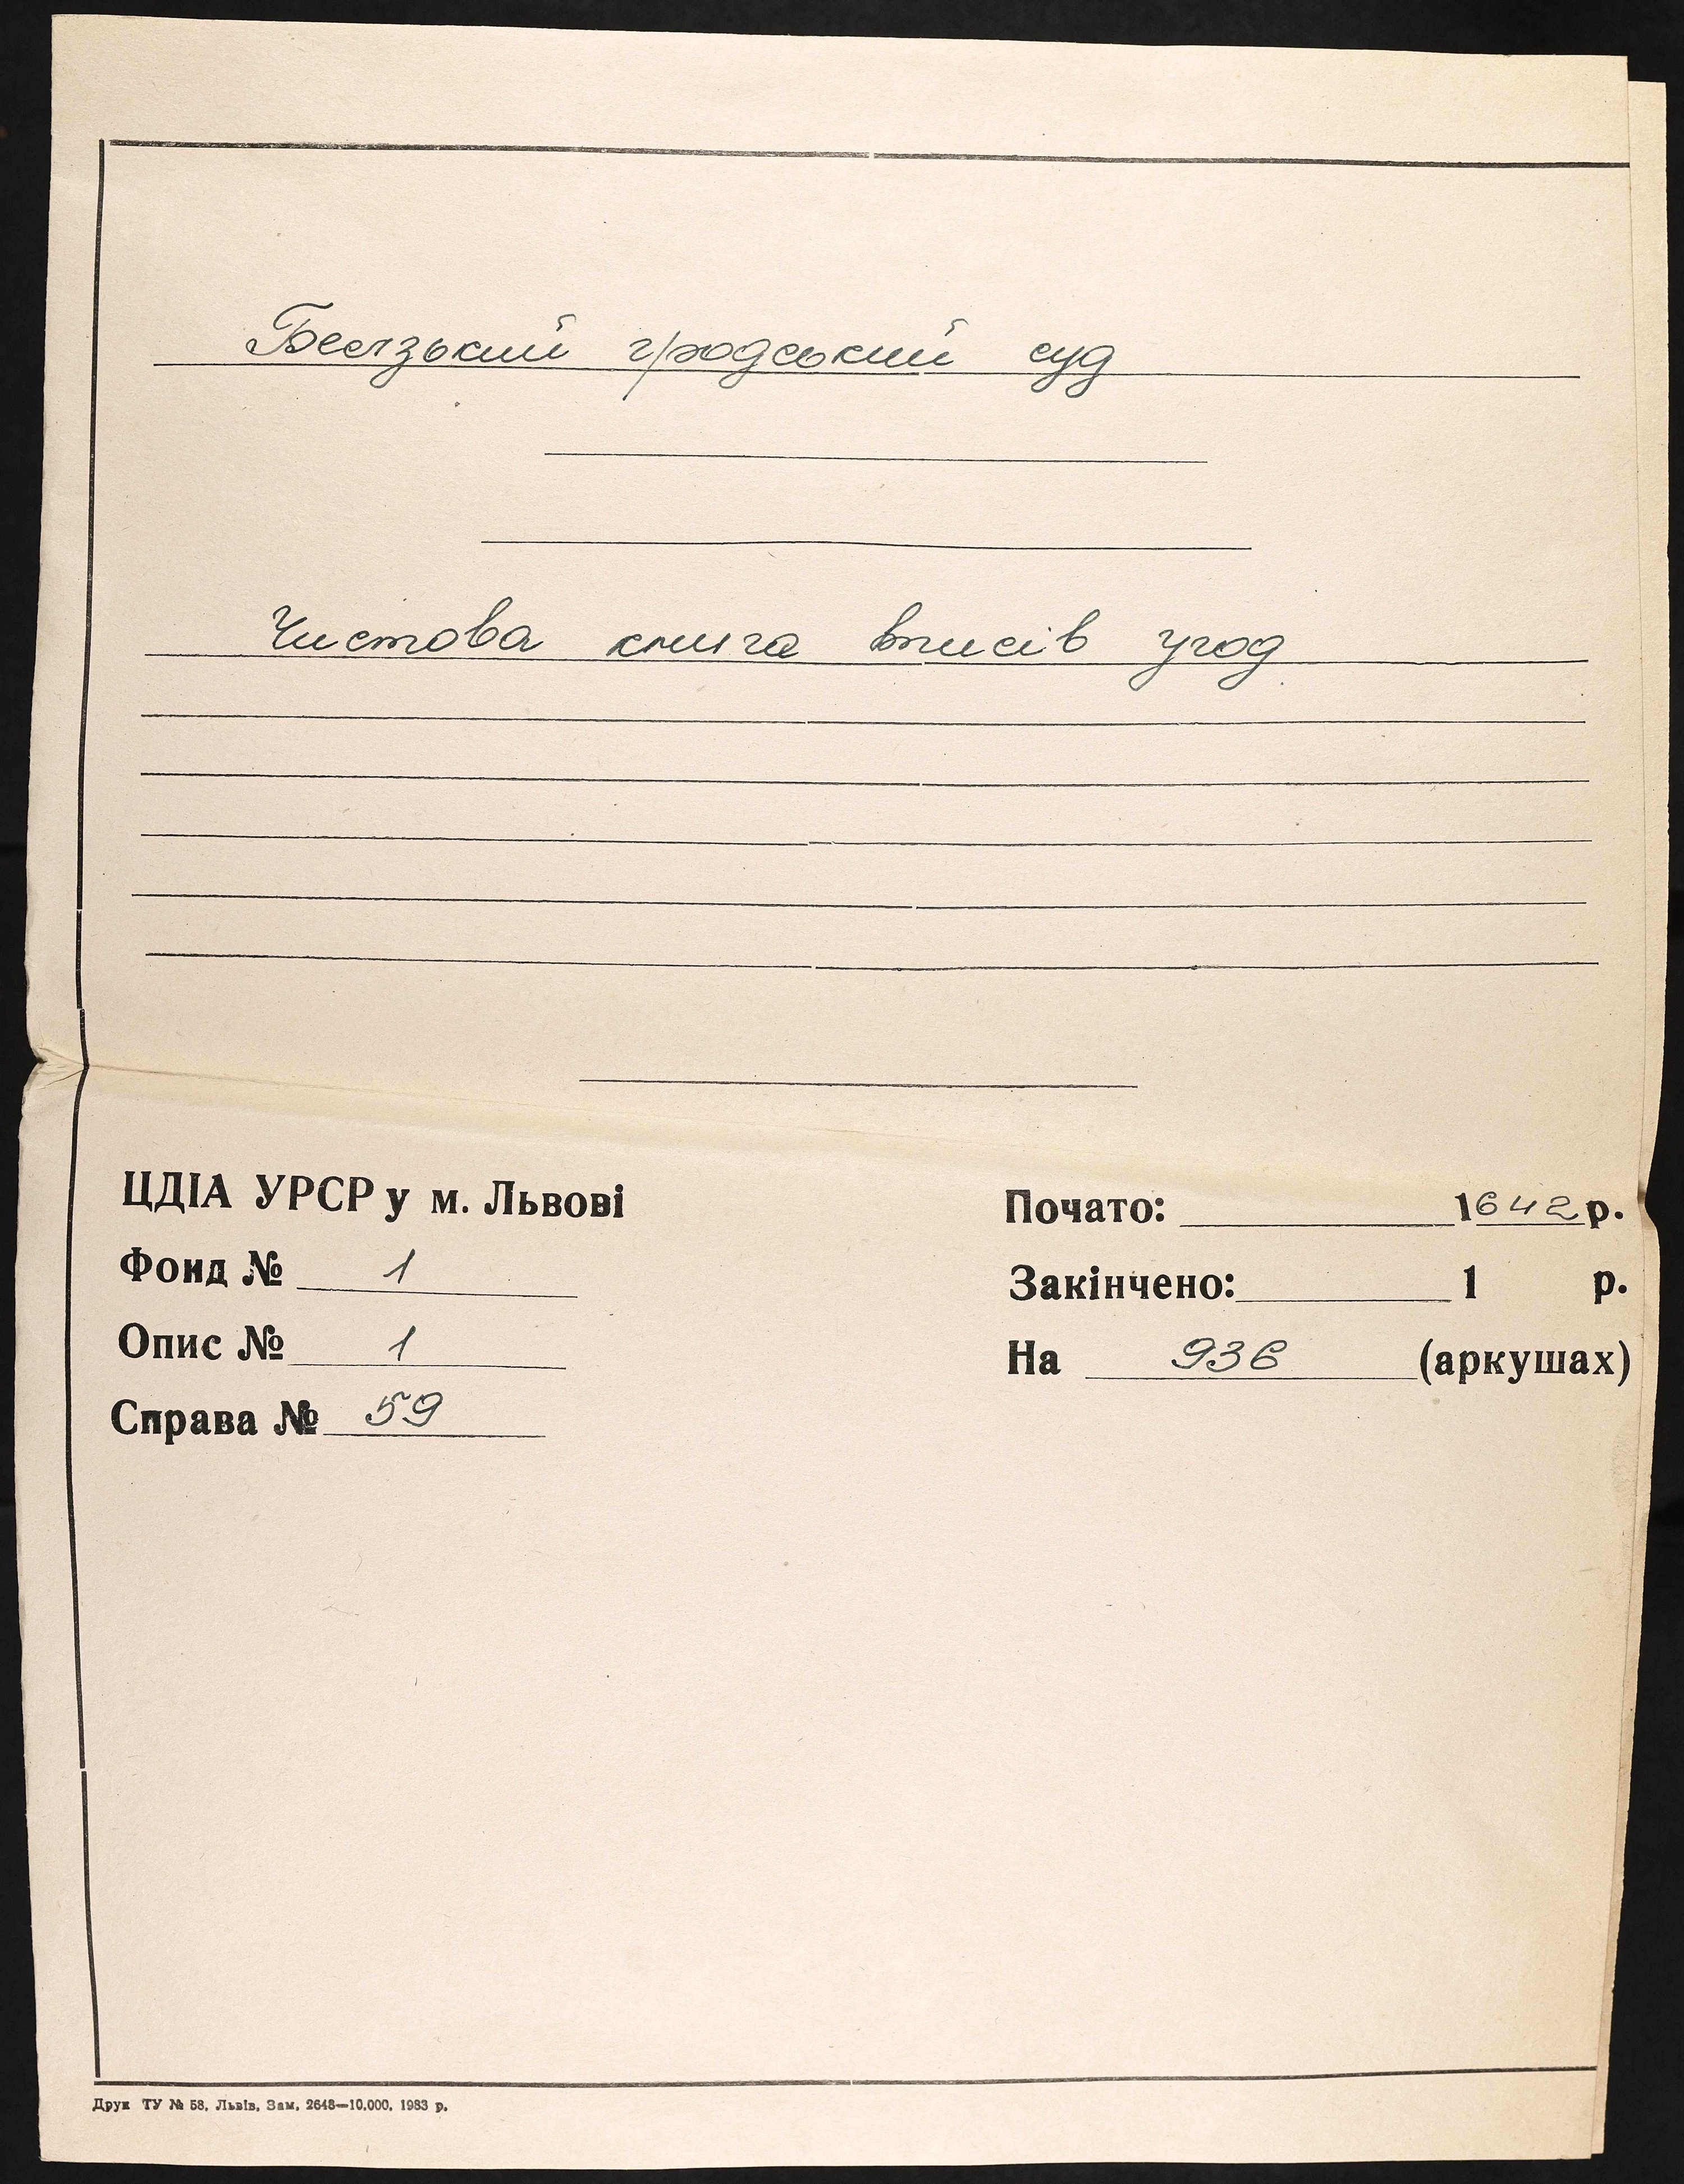 Белзький гродський суд
Чистова книга вписів угод
ЦДІА УРСР у м. Львові
Фонд № 1
Опис № 1
Справа № 59
Почато: 1642 р.
Закінчено: 1 р.
На 936 (аркушах)
Друк ТУ № 58, Львів, Зам. 2648—10.000. 1983 р.